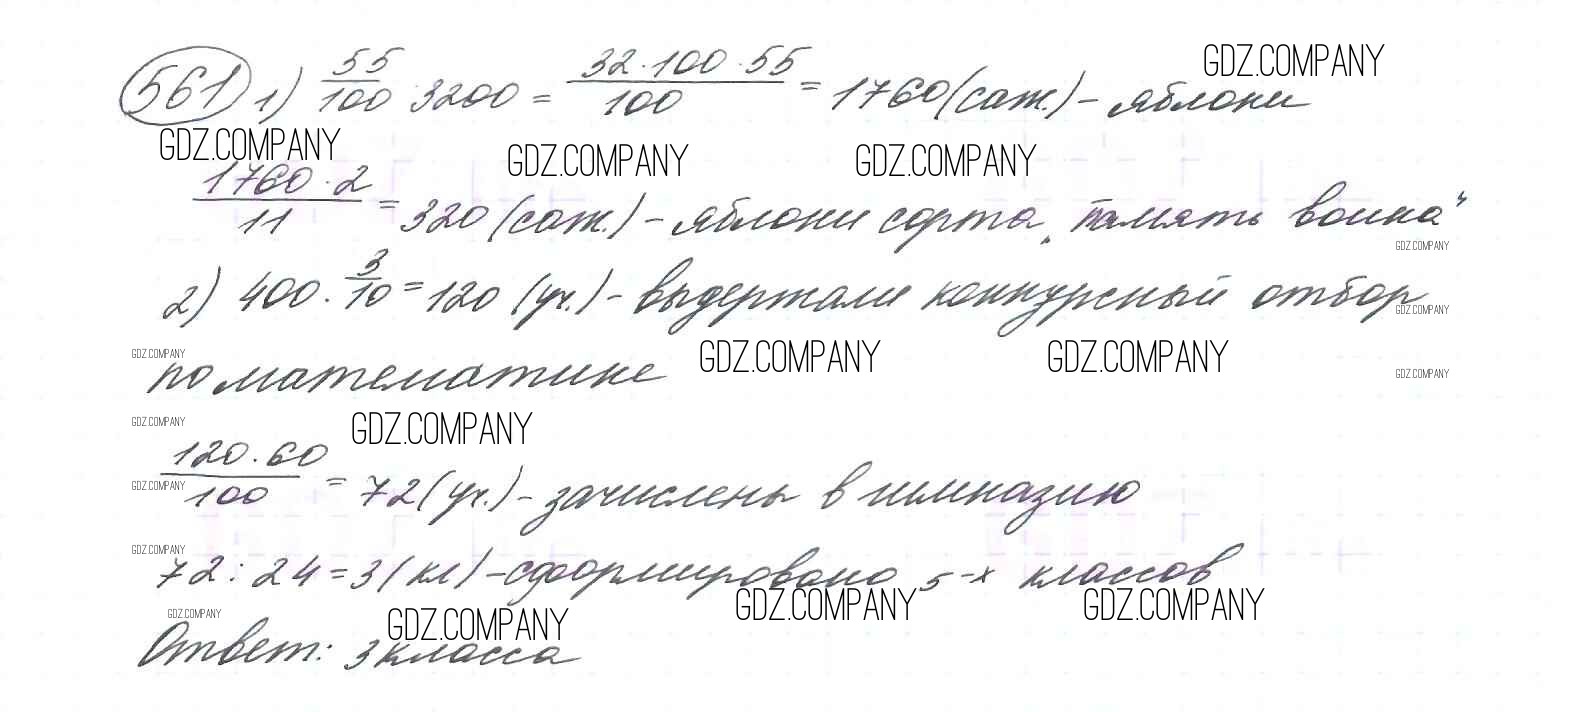 561 1) 55/100 · 3200 = 32·100·55/100 = 1760 (саж.) – яблони
GDZ.COMPANY
GDZ.COMPANY GDZ.COMPANY GDZ.COMPANY
1760·2/11 = 320 (саж.) – яблони сорта „память воина“
GDZ.COMPANY
2) 400 · 3/10 = 120 (уч.) – выдержали конкурсный отбор
GDZ.COMPANY
GDZ.COMPANY GDZ.COMPANY GDZ.COMPANY
по математике
GDZ.COMPANY
GDZ.COMPANY GDZ.COMPANY
120·60/100 = 72 (уч.) – зачислены в гимназию
GDZ.COMPANY
GDZ.COMPANY
72 : 24 = 3 (кл) – сформировано 5-х классов
GDZ.COMPANY GDZ.COMPANY GDZ.COMPANY GDZ.COMPANY
Ответ: 3 класса